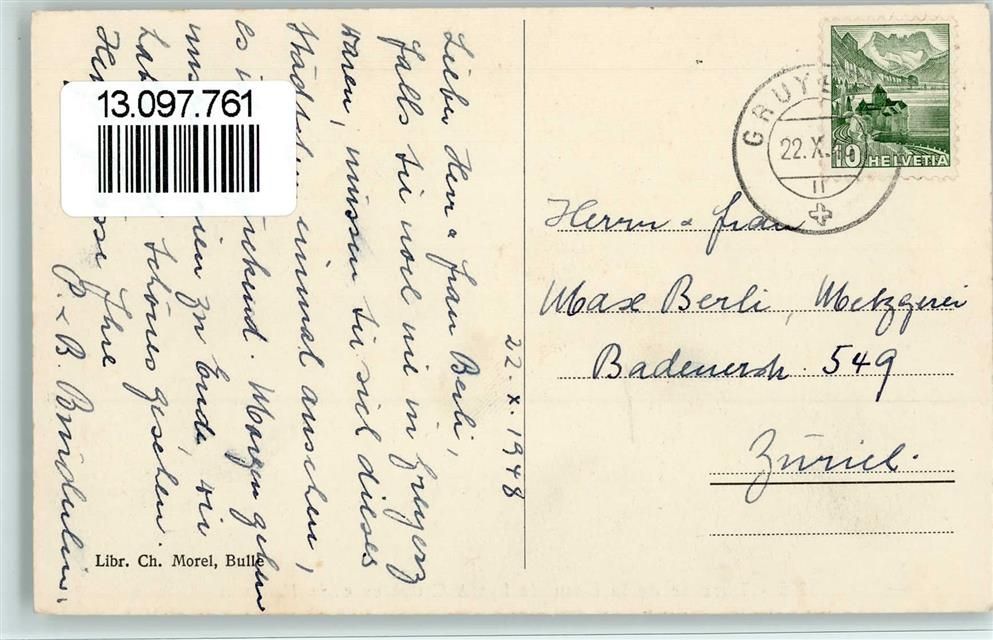 13.097.761
Lieber Herr & Frau Berli,
falls Sie noch nie in Greyerz
waren, müssen Sie sich dieses
Städtchen einmal ansehen,
es ist
Morgen gehen
zu Ende, wir
schönes gesehen.
Ihre
P. & B.
22.X.1948
Libr. Ch. Morel, Bulle
GRUY
22.X.
10 HELVETIA
Herrn & Frau
Max Berli, Metzgerei
Badenerstr. 549
Zürich.